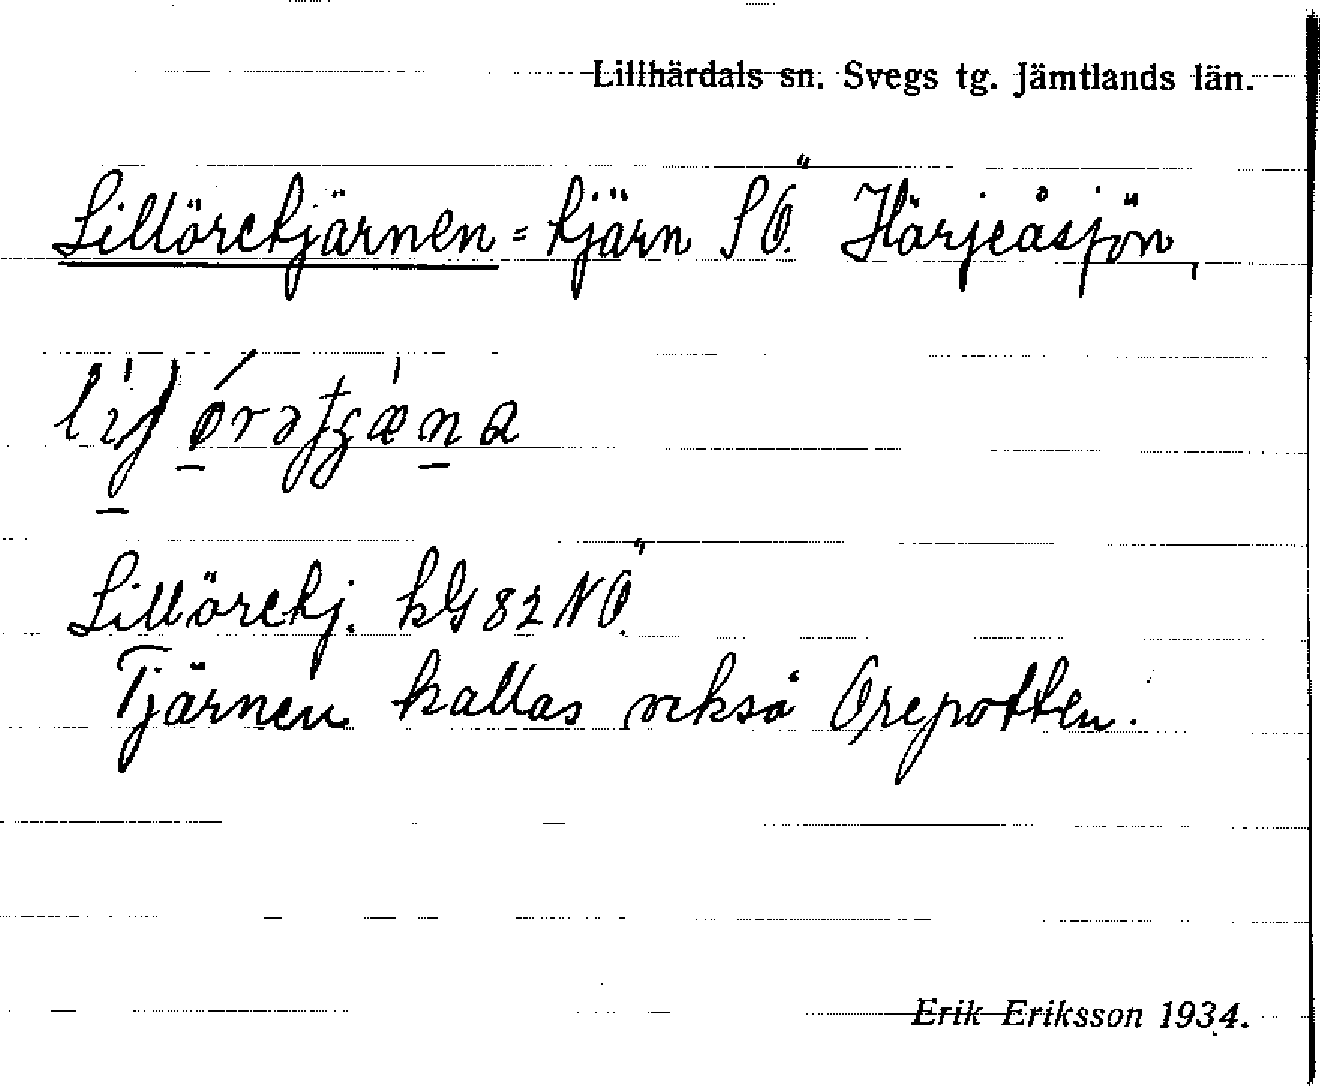 Lillhärdals sn. Svegs tg. Jämtlands län.
Lillöretjärnen = tjärn SÖ. Härjeåsjön,
Lillöretj. kG 82 NÖ.
Tjärnen kallas också Örepotten.
Erik Eriksson 1934.